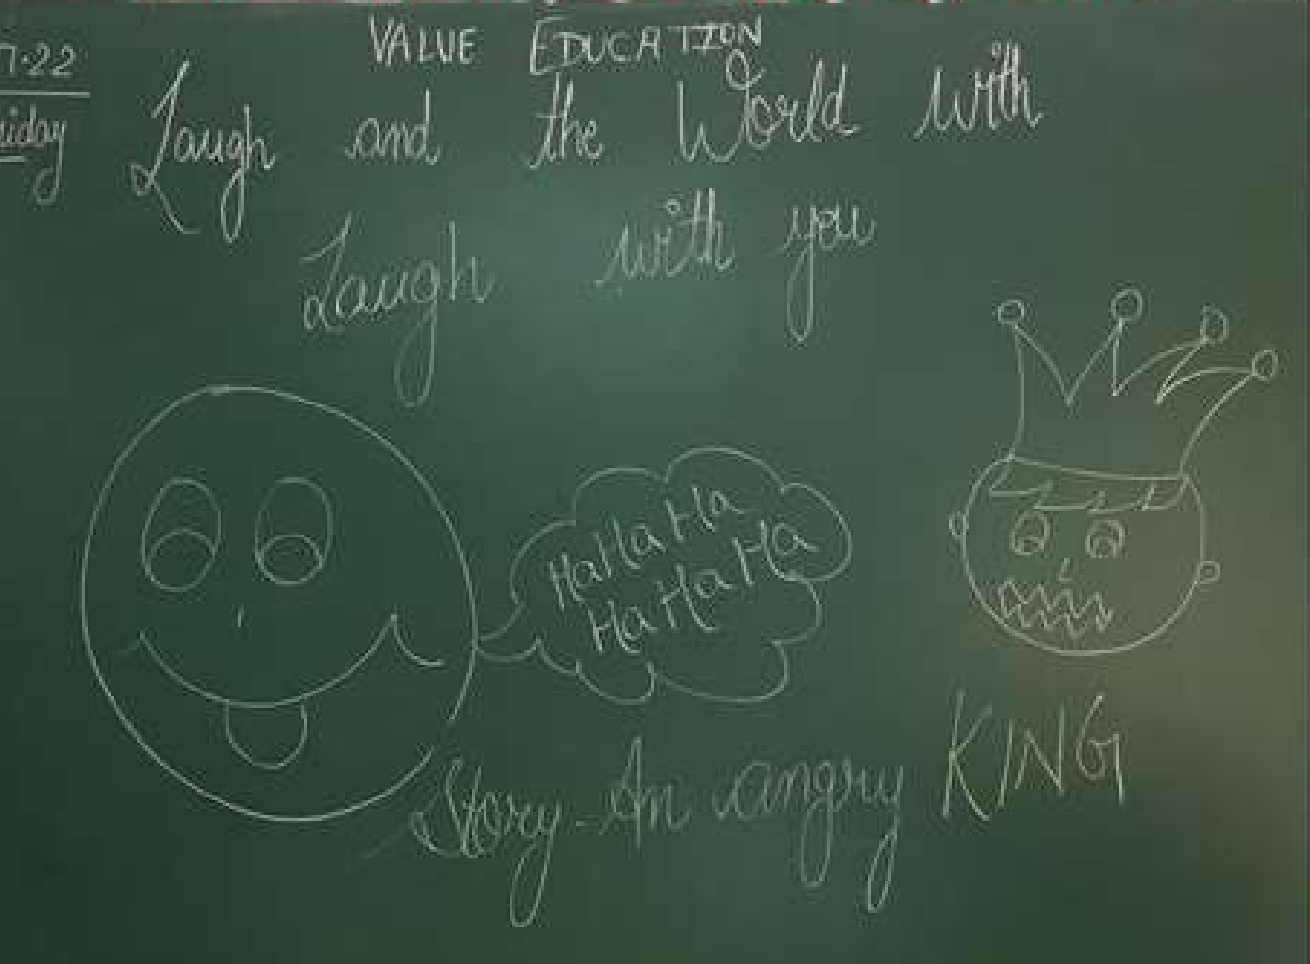 VALUE EDUCATION
7.22
Laugh and the World with
Laugh with you
HaHaHa
HaHaHa
Story - An angry KING